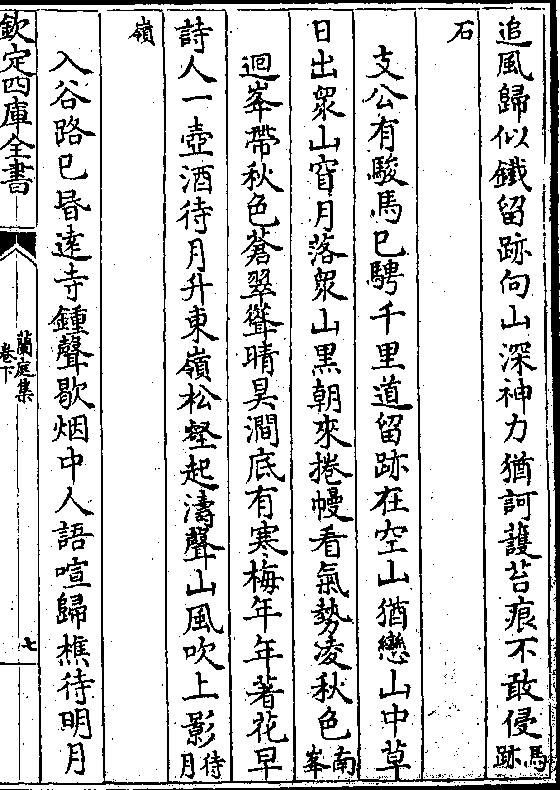 追風歸似鐵留跡向山深神力猶訶護苔痕不敢侵馬跡
石
支公有駿馬已騁千里道留跡在空山猶戀山中草
日出衆山窅月落衆山黑朝來捲幔看氣勢凌秋色南峯
迴峯帶秋色蒼翠聳晴昊澗底有寒梅年年著花早
詩人一壺酒待月升東嶺松壑起濤聲山風吹上影待月
嶺
入谷路已昏遠寺鍾聲歇烟中人語喧歸樵待明月
欽定四庫全書
蘭庭集
卷下
七